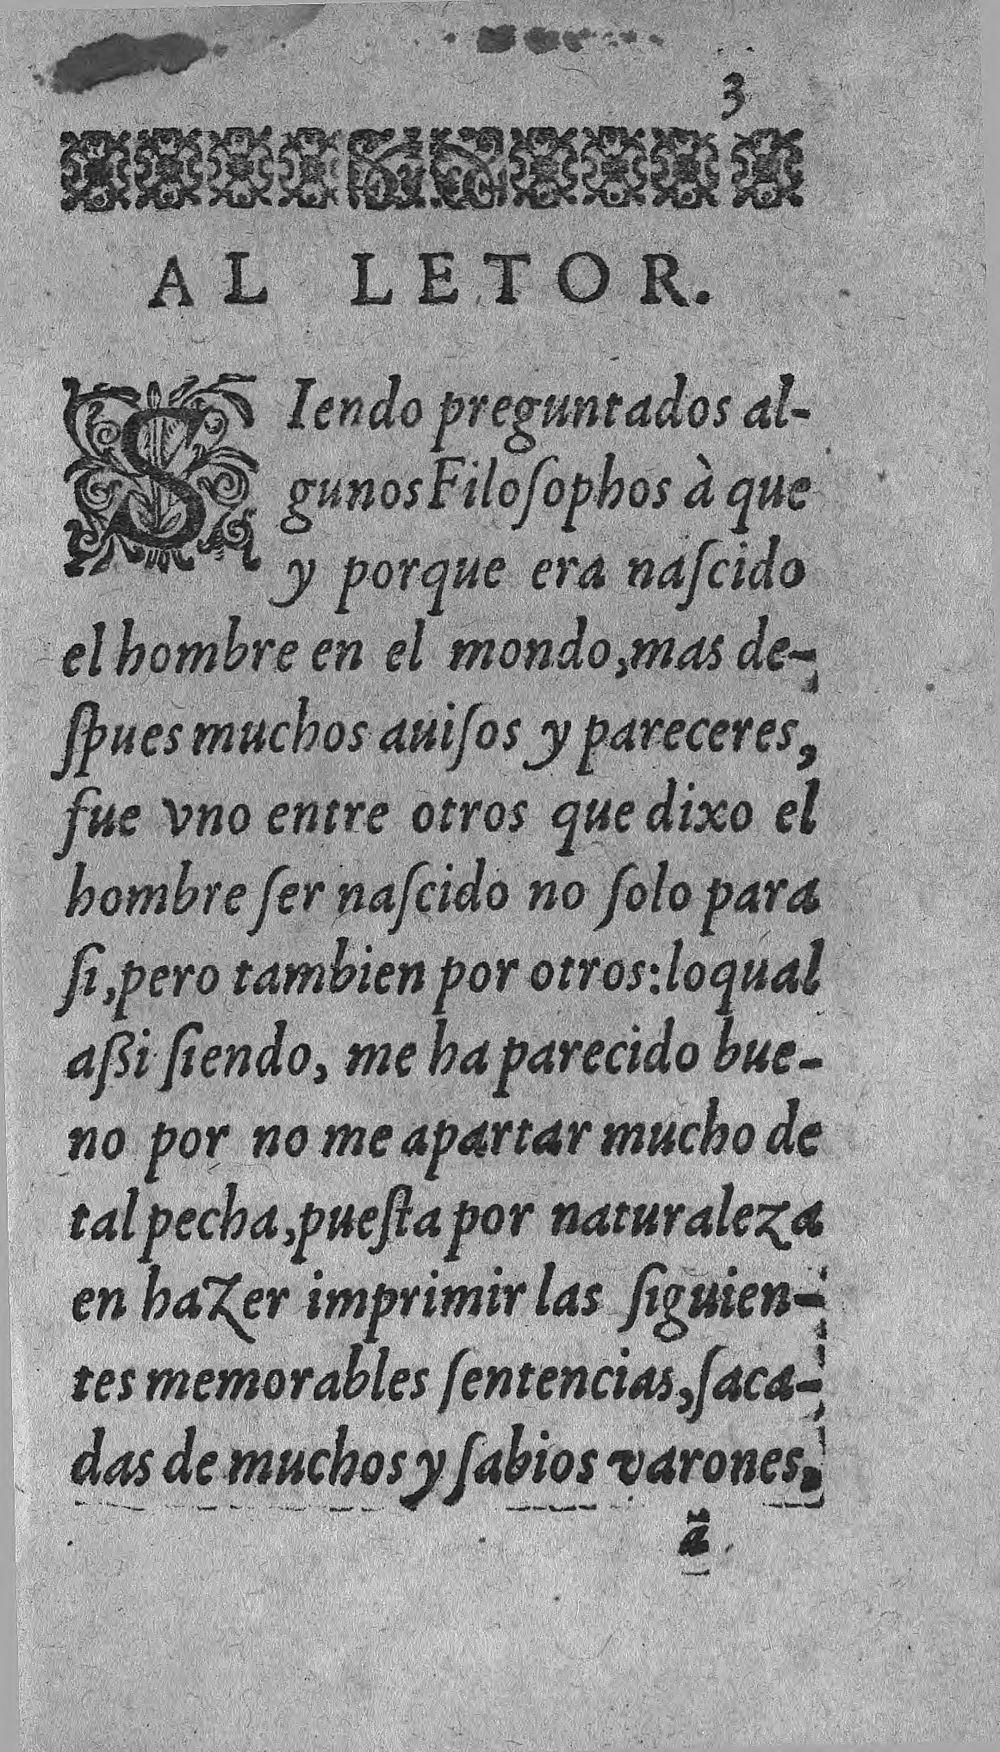 3
AL LETOR.
SIendo preguntados al-
gunos Filoſophos à que
y porque era naſcido
el hombre en el mondo,mas de-
ſpues muchos auiſos y pareceres,
fue vno entre otros que dixo el
hombre ſer naſcido no ſolo para
ſi,pero tambien por otros:loqual
aßi ſiendo, me ha parecido bue-
no por no me apartar mucho de
tal pecha,pueſta por naturaleza
en hazer imprimir las ſiguien-
tes memorables ſentencias,ſaca-
das de muchos y ſabios varones,
ã